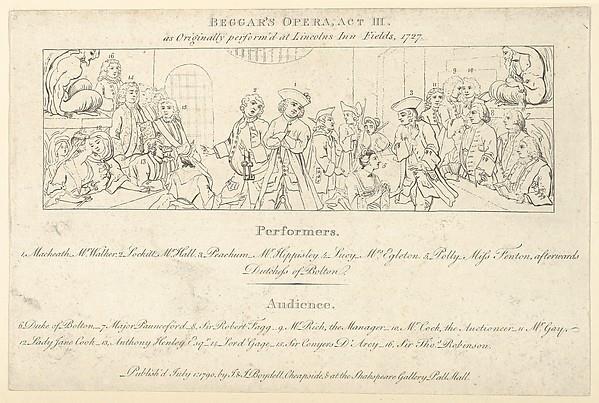 BEGGAR'S OPERA, ACT III.
as Originally perform'd at Lincolns Inn Fields, 1727.
16
14
15
2
1
3
11
9
10
8
13
5
Performers.
1, Macheath, Mr. Walker, 2, Lockitt, Mr. Hall, 3, Peachum, Mr. Hippisley, 4, Lucy, Mrs. Egleton, 5, Polly, Miss Fenton, afterwards
Dutchess of Bolton.
Audience.
6, Duke of Bolton, _ 7, Major Paunceford _ 8, Sir Robert Fagg _ 9, Mr. Rich, the Manager _ 10, Mr. Cock, the Auctioneer _ 11, Mr. Gay, _
12, Lady Jane Cook _ 13, Anthony Henley, Esqr. _ 14, Lord Gage _ 15, Sir Conyers D'Arcy _ 16, Sir Thos. Robinson.
_Publish'd July 1, 1790, by J. & J. Boydell, Cheapside, & at the Shakspeare Gallery, Pall Mall.